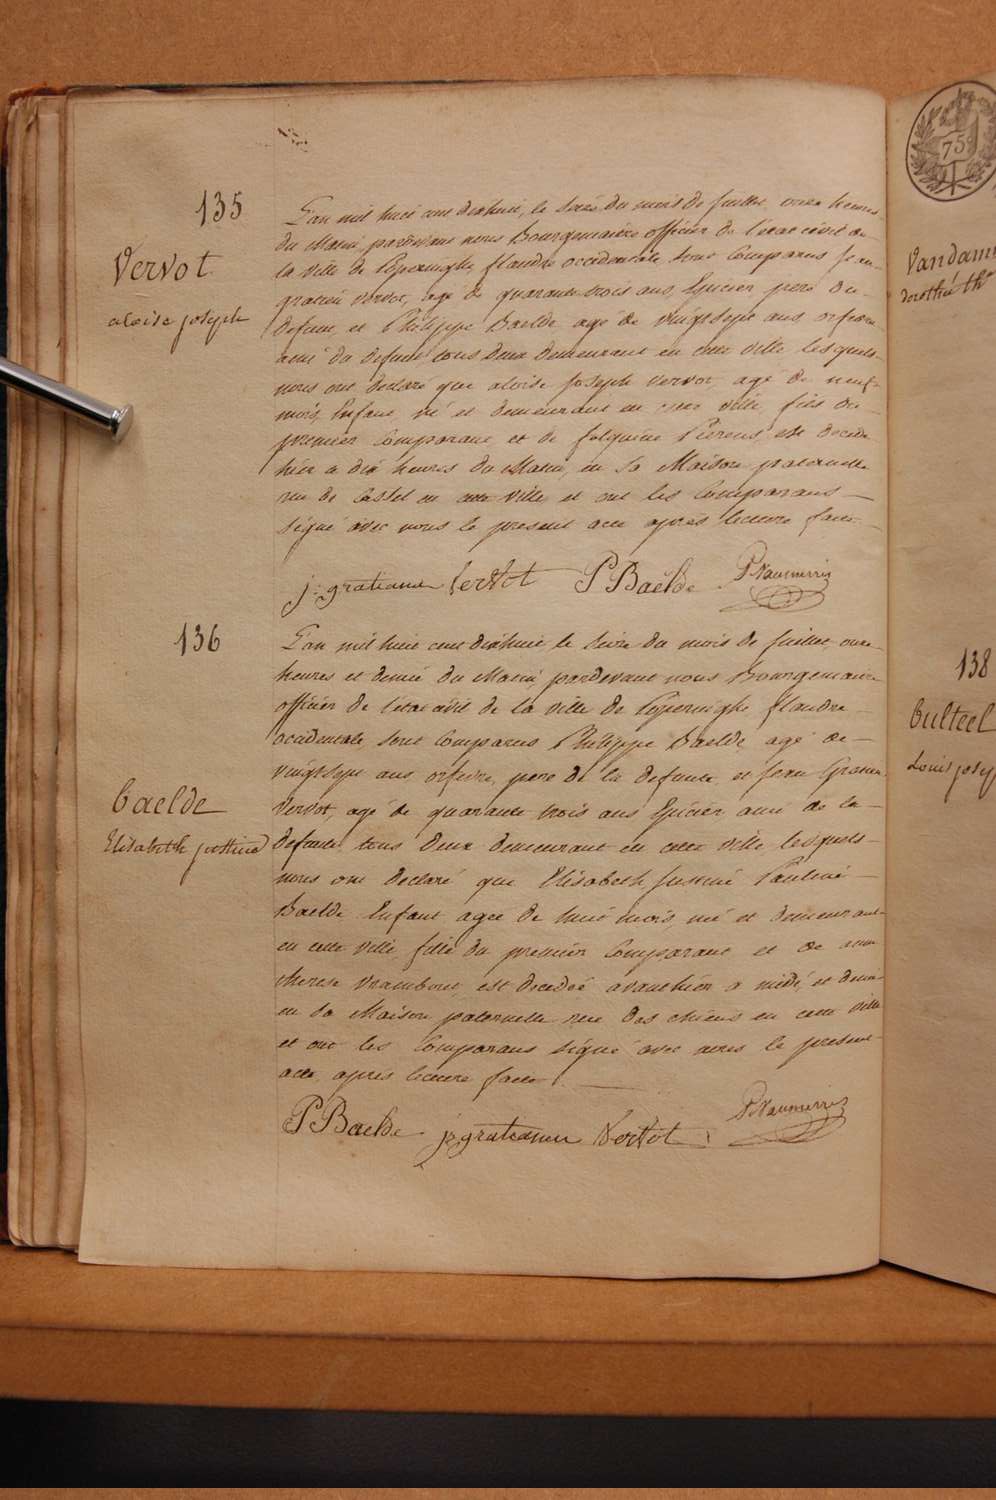 135
Vervot
aloise joseph
L'an mil huit cent dixhuit, le seize du mois de juillet, onze heures
du Matin, pardevant nous Bourgemaitre officier de l'etat civil de
la ville de Poperinghe, flandre occidentale sont Comparus jean
gratien Vervot, agé de quarante trois ans, Epicier, pere du
defunt, et Philippe Baelde agé de vingtsept ans orfevre
ami du defunt tous deux demeurant en cette ville lesquels
nous ont declaré que aloise joseph Vervot, agé de neuf
mois, Enfant, né et demeurant en cette ville, fils du
premier Comparant et de Pierens, est decedé
hier a dix heures du Matin, en sa Maison paternelle
rue de Castel en cette ville, et ont les Comparans
signé avec nous le present acte après lecture faite.
j: gratianus Vervot P Baelde
136
Baelde
Elisabeth justine
L'an mil huit cent dixhuit, le seize du mois de juillet, onze
heures et demie du Matin, pardevant nous Bourgemaire
officier de l'etat civil de la ville de Poperinghe, flandre
occidentale, sont Comparus Philippe Baelde, agé de
vingtsept ans, orfevre, pere de la defunte, et jean Gratien
Vervot, agé de quarante trois ans Epicier ami de la
defunte tous deux demeurant en cette ville lesquels
nous ont declaré que Elisabeth Justine Pauline
Baelde Enfant agee de huit mois, né et demeurant
en cette ville, fille du premier Comparant et de anne
therese, est decedée avanthier a midi, et demi
en sa Maison paternelle rue des chiens en cette ville
et ont les Comparans signé avec nous le present
acte, après lecture faite.
P Baelde j: gratianus Vervot
75
Vandam
dorothé th
138
Bulteel
Louis josep